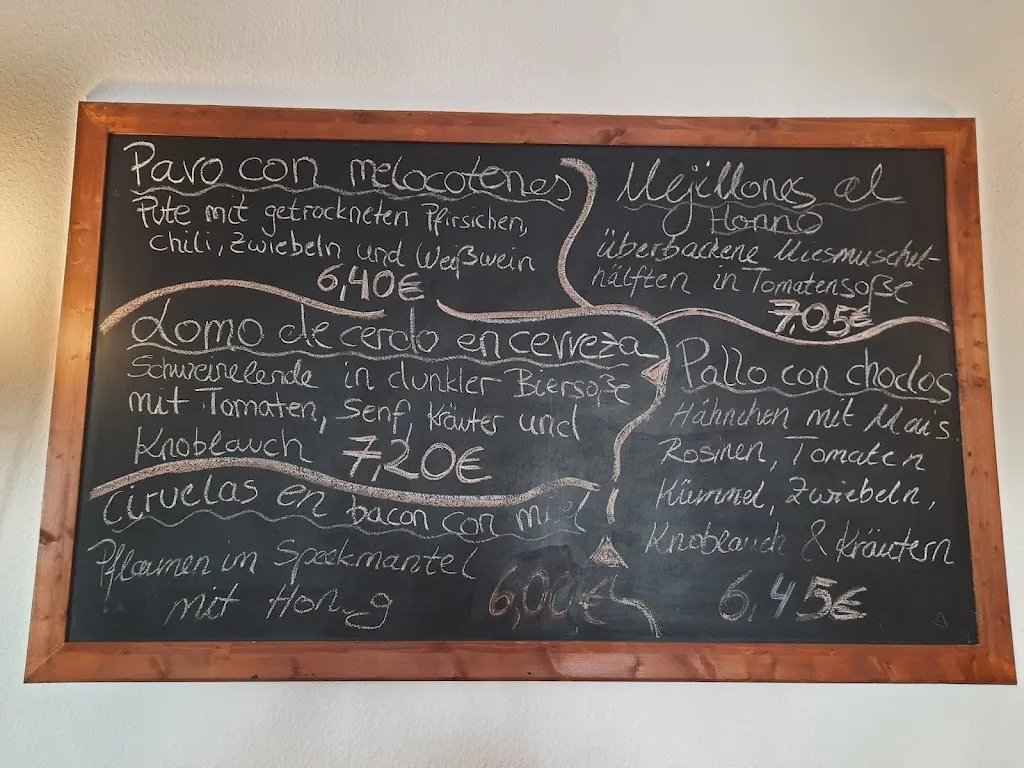 Pavo con melocotenes
Pute mit getrockneten Pfirsichen,
Chili, Zwiebeln und Weißwein
6,40€
Lomo de cerdo en cerveza
Schweinelende in dunkler Biersoße
mit Tomaten, Senf, Kräuter und
Knoblauch 7,20€
Ciruelas en bacon con miel
Pflaumen im Speckmantel
mit Honig 6,00€
Mejillones al
Horno
überbackene Miesmuschel-
hälften in Tomatensoße
7,05€
Pollo con choclos
Hähnchen mit Mais.
Rosinen, Tomaten
Kümmel, Zwiebeln,
Knoblauch & Kräutern
6,45€